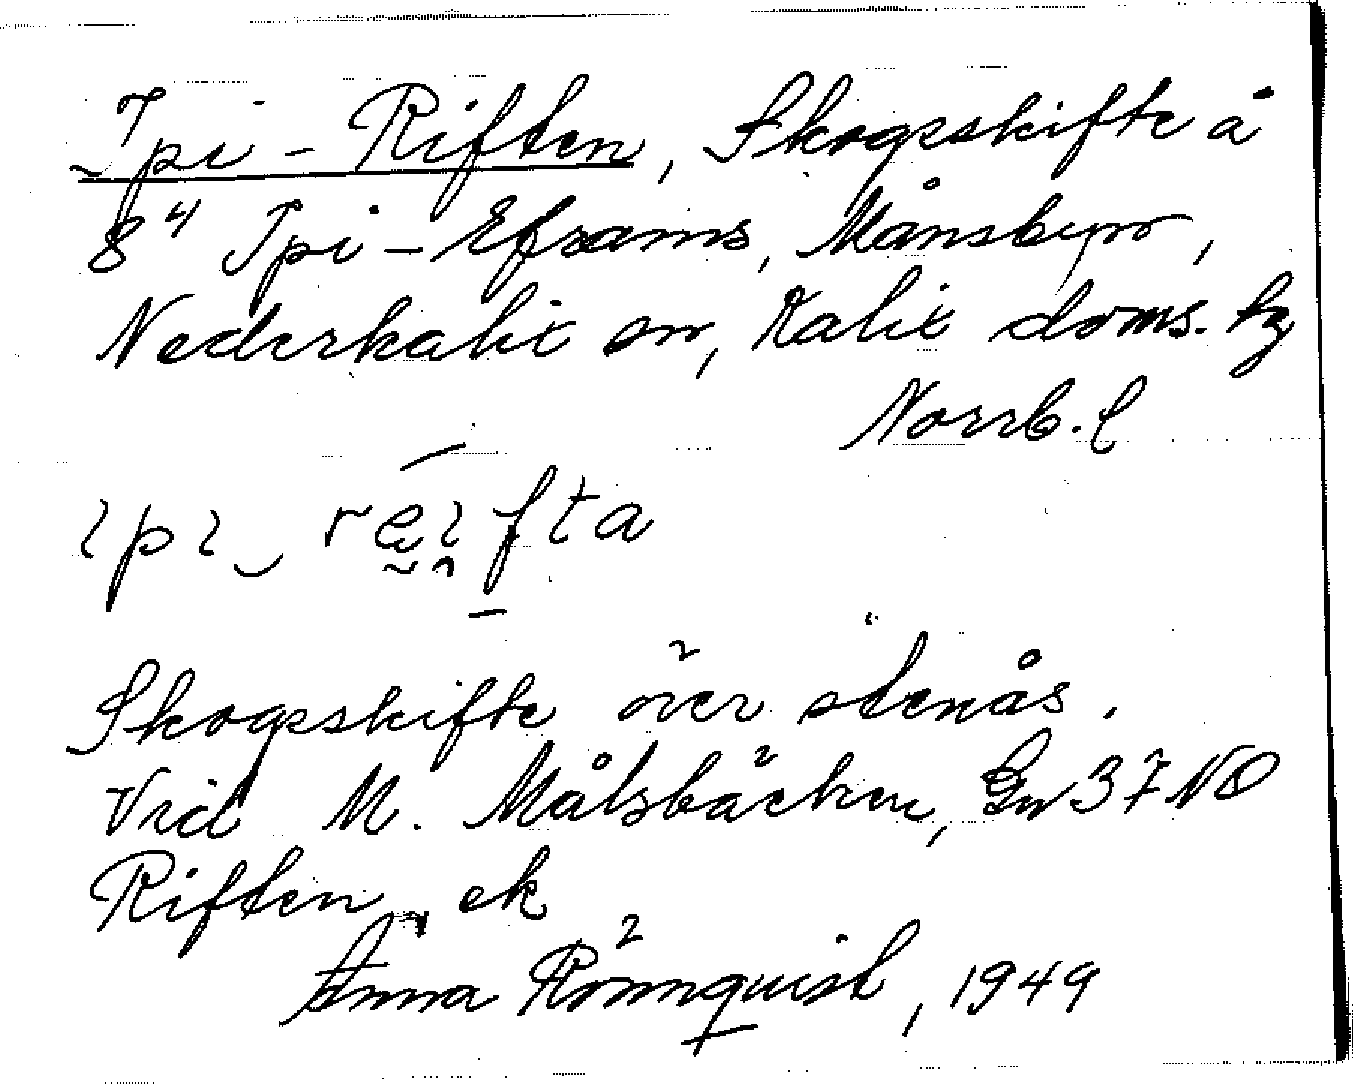 Ipi-Riften, Skogsskifte å
8⁴ Ipi-Eframs, Månsbyn,
Nederkalix sn, Kalix doms. hg
Norrb. l
ipi reifta
Skogsskifte över stenås.
Vid M. Målsbäcken, Gw 37 NO
Riften, ek
Anna Rönnquist, 1949